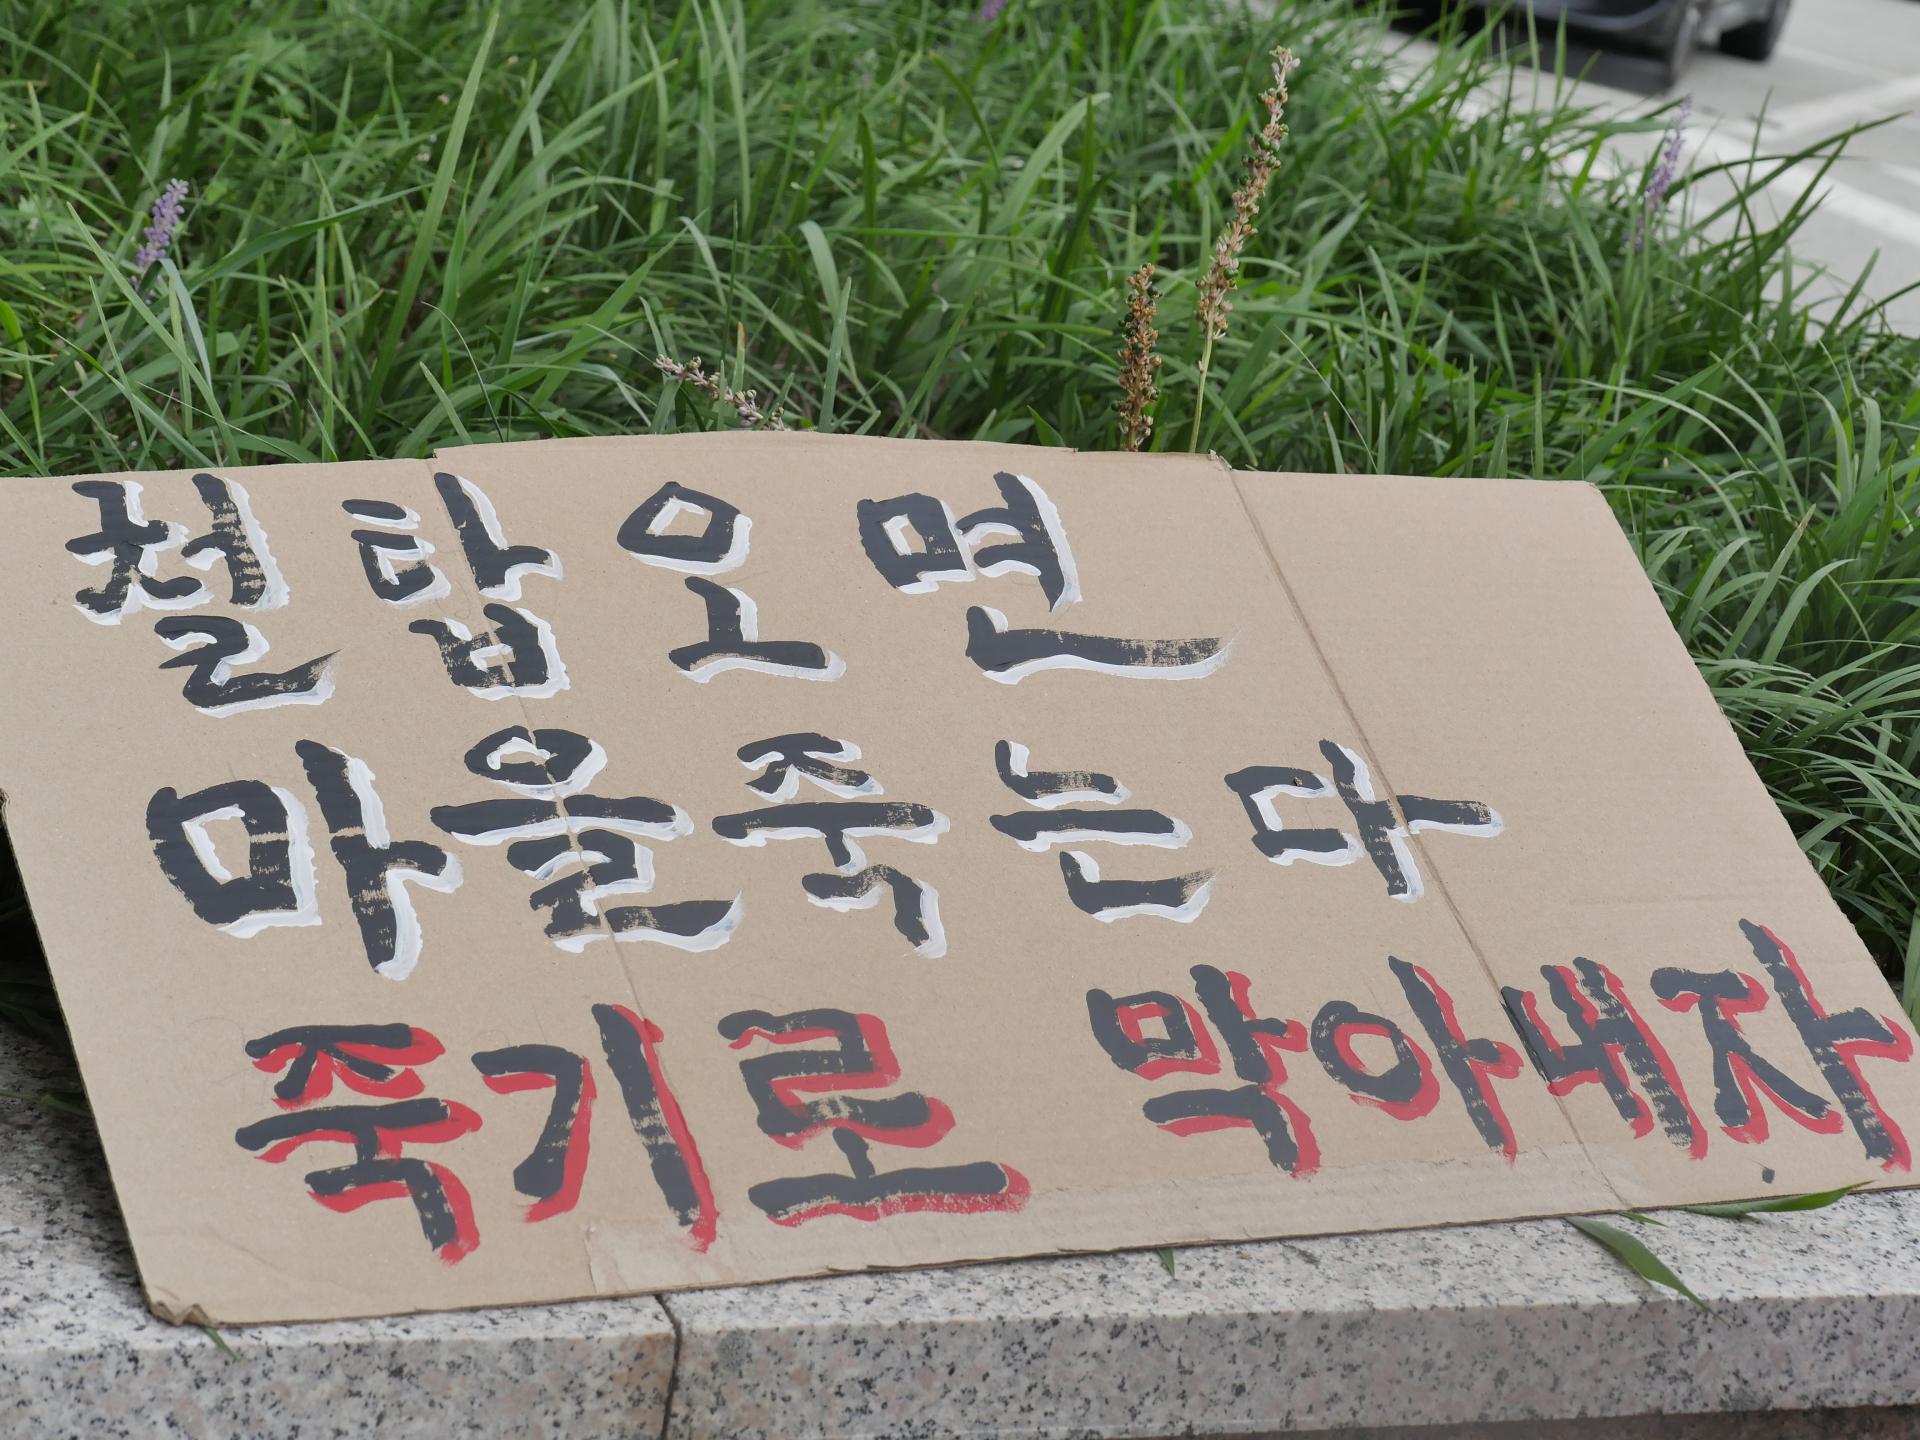 철탑오면
마을죽는다
죽기로 막아내자